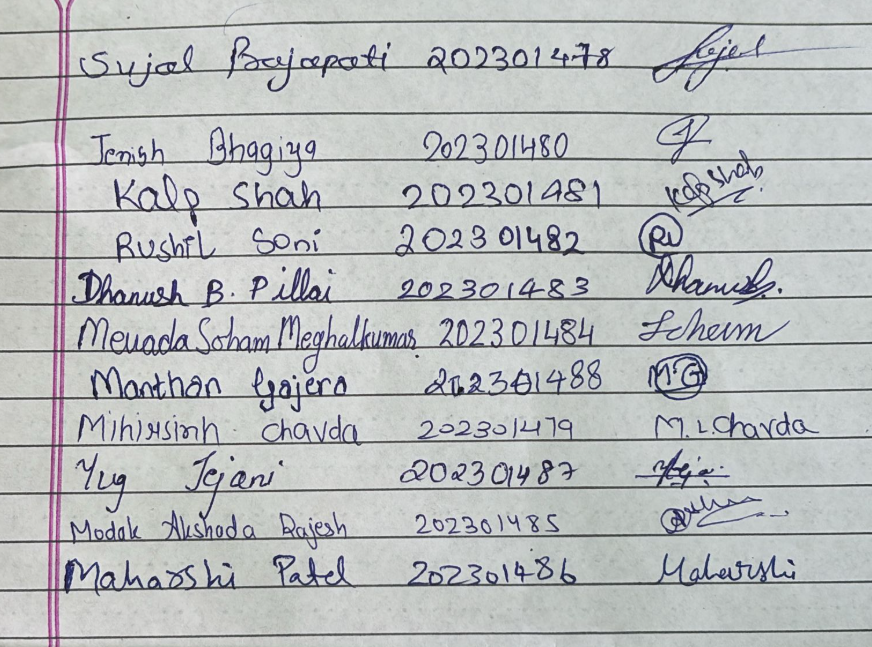 Sujal Prajapati 202301478 Sujal
Jenish Bhagiya 202301480
Kalp Shah 202301481 Kalp Shah
Rushil Soni 202301482 RV
Dhanush B. Pillai 202301483 Dhanush.
Mewada Soham Meghalkumar 202301484 Soham
Manthan Gajera 202301488 M.G
Mihirsinh Chavda 202301479 M.L.Chavda
Yug Jejani 202301487
Modak Akshada Rajesh 202301485
Maharshi Patel 202301486 Maharshi